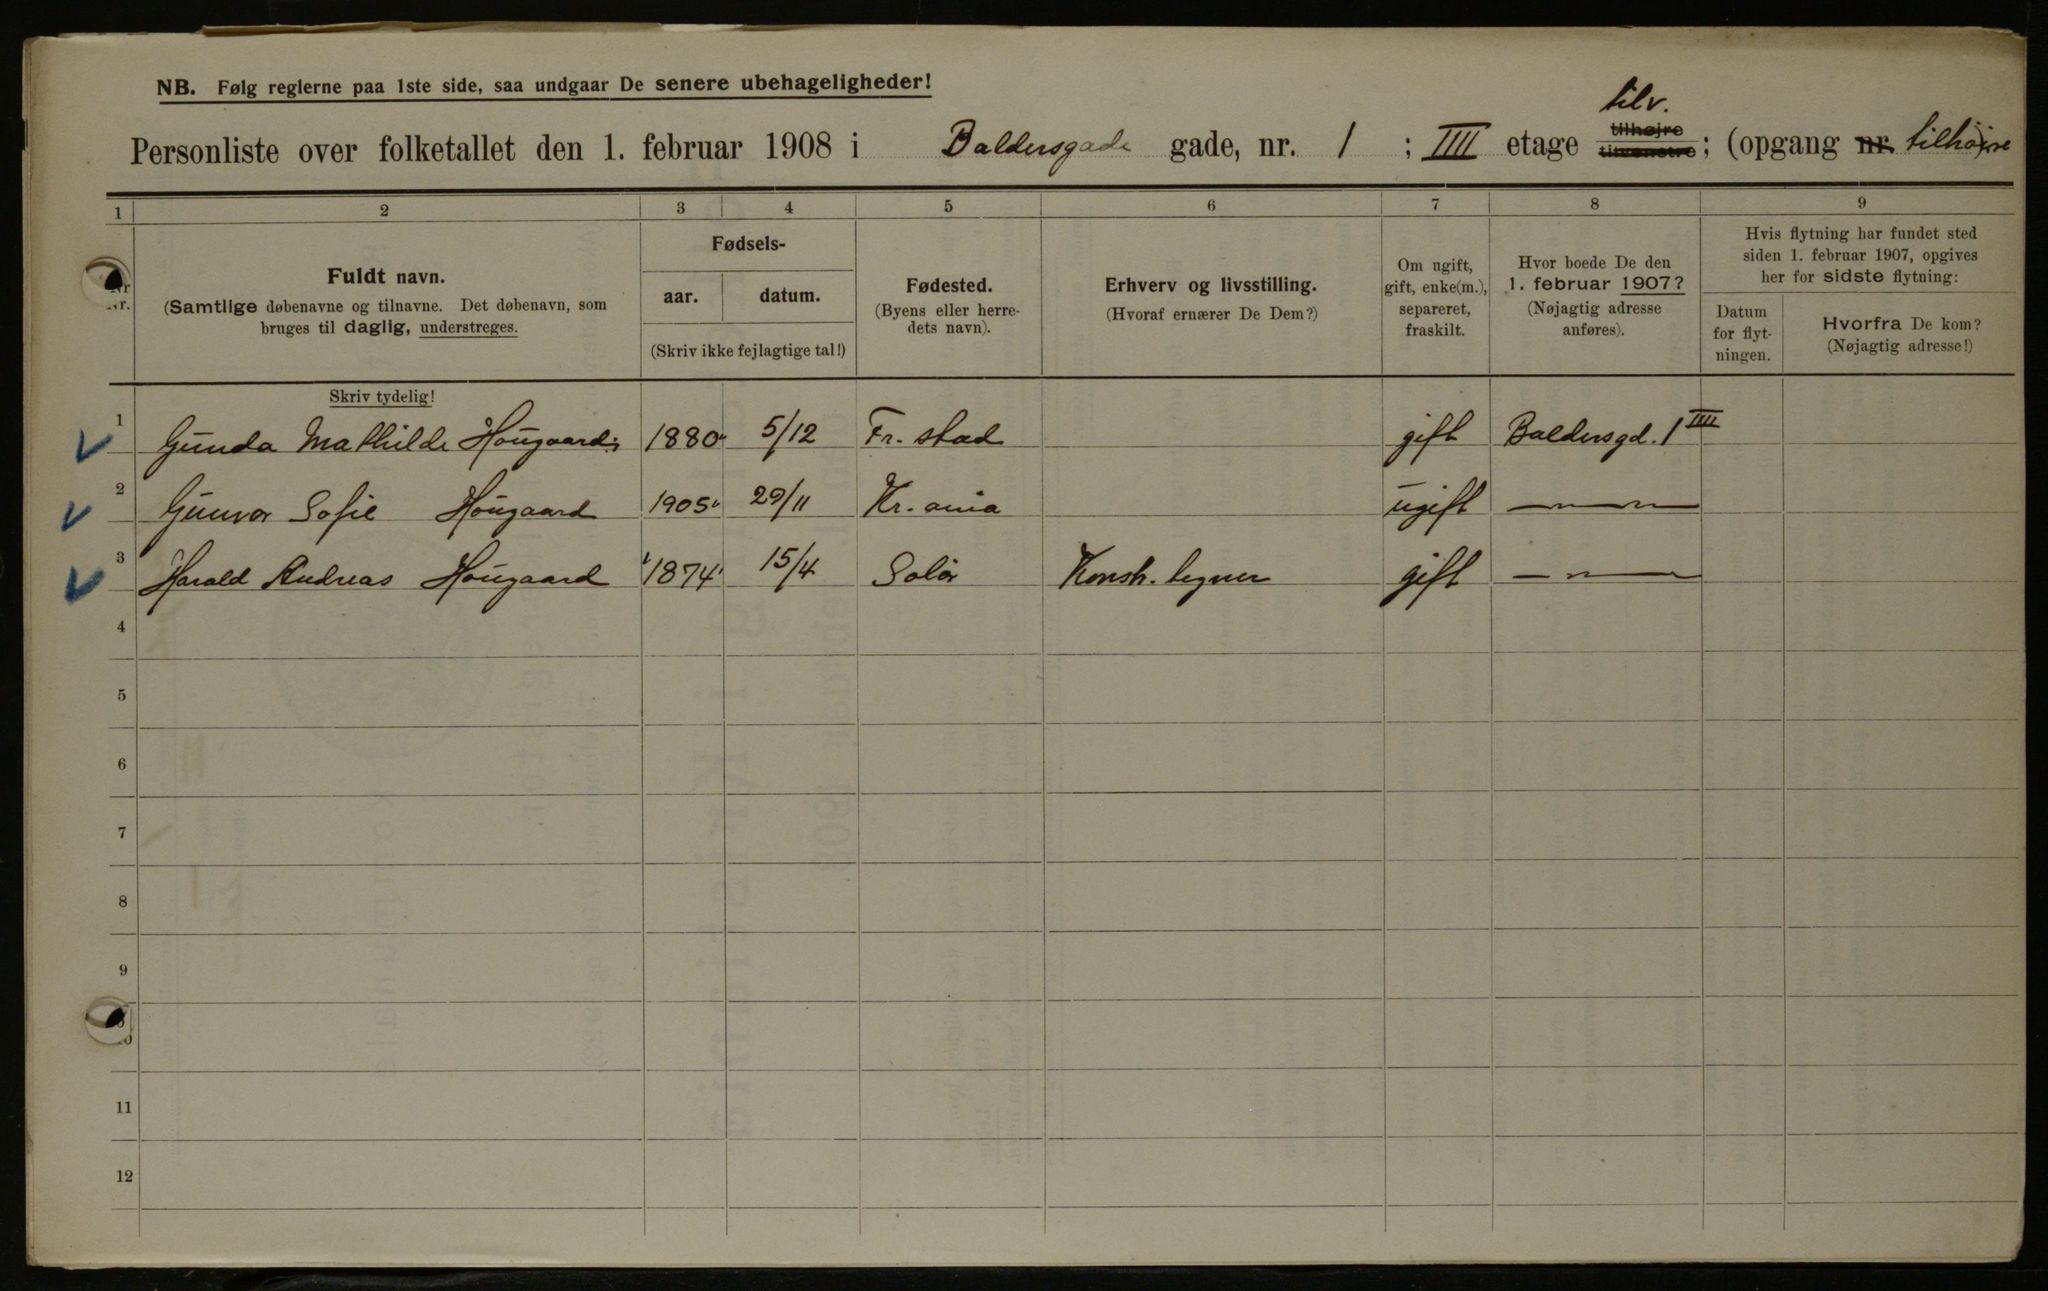 NB. Følg reglerne paa 1ste side, saa undgaar De senere ubehageligheder!
tilv.
Personliste over folketallet den 1. februar 1908 i Baldersgade gade, nr. 1 ; IIII etage tilhøjre tilvenstre ; (opgang nr. tilhøire
1 2 3 4 5 6 7 8 9
Nr.
Fuldt navn.
(Samtlige døbenavne og tilnavne. Det døbenavn, som
bruges til daglig, understreges.
Fødsels-
aar. datum.
(Skriv ikke fejlagtige tal!)
Fødested.
(Byens eller herre-
dets navn).
Erhverv og livsstilling.
(Hvoraf ernærer De Dem?)
Om ugift,
gift, enke(m.),
separeret,
fraskilt.
Hvor boede De den
1. februar 1907?
(Nøjagtig adresse
anføres).
Hvis flytning har fundet sted
siden 1. februar 1907, opgives
her for sidste flytning:
Datum
for flyt-
ningen.
Hvorfra De kom?
(Nøjagtig adresse!)
Skriv tydelig!
1 Gunda Mathilde Hougaard 1880 5/12 Fr. stad gift Baldersgd. 1 IIII
2 Gunvor Sofie Hougaard 1905 29/11 Kr. ania ugift — " —
3 Harald Andreas Hougaard 1874 15/4 Solør gift — " —
4
5
6
7
8
9
10
11
12